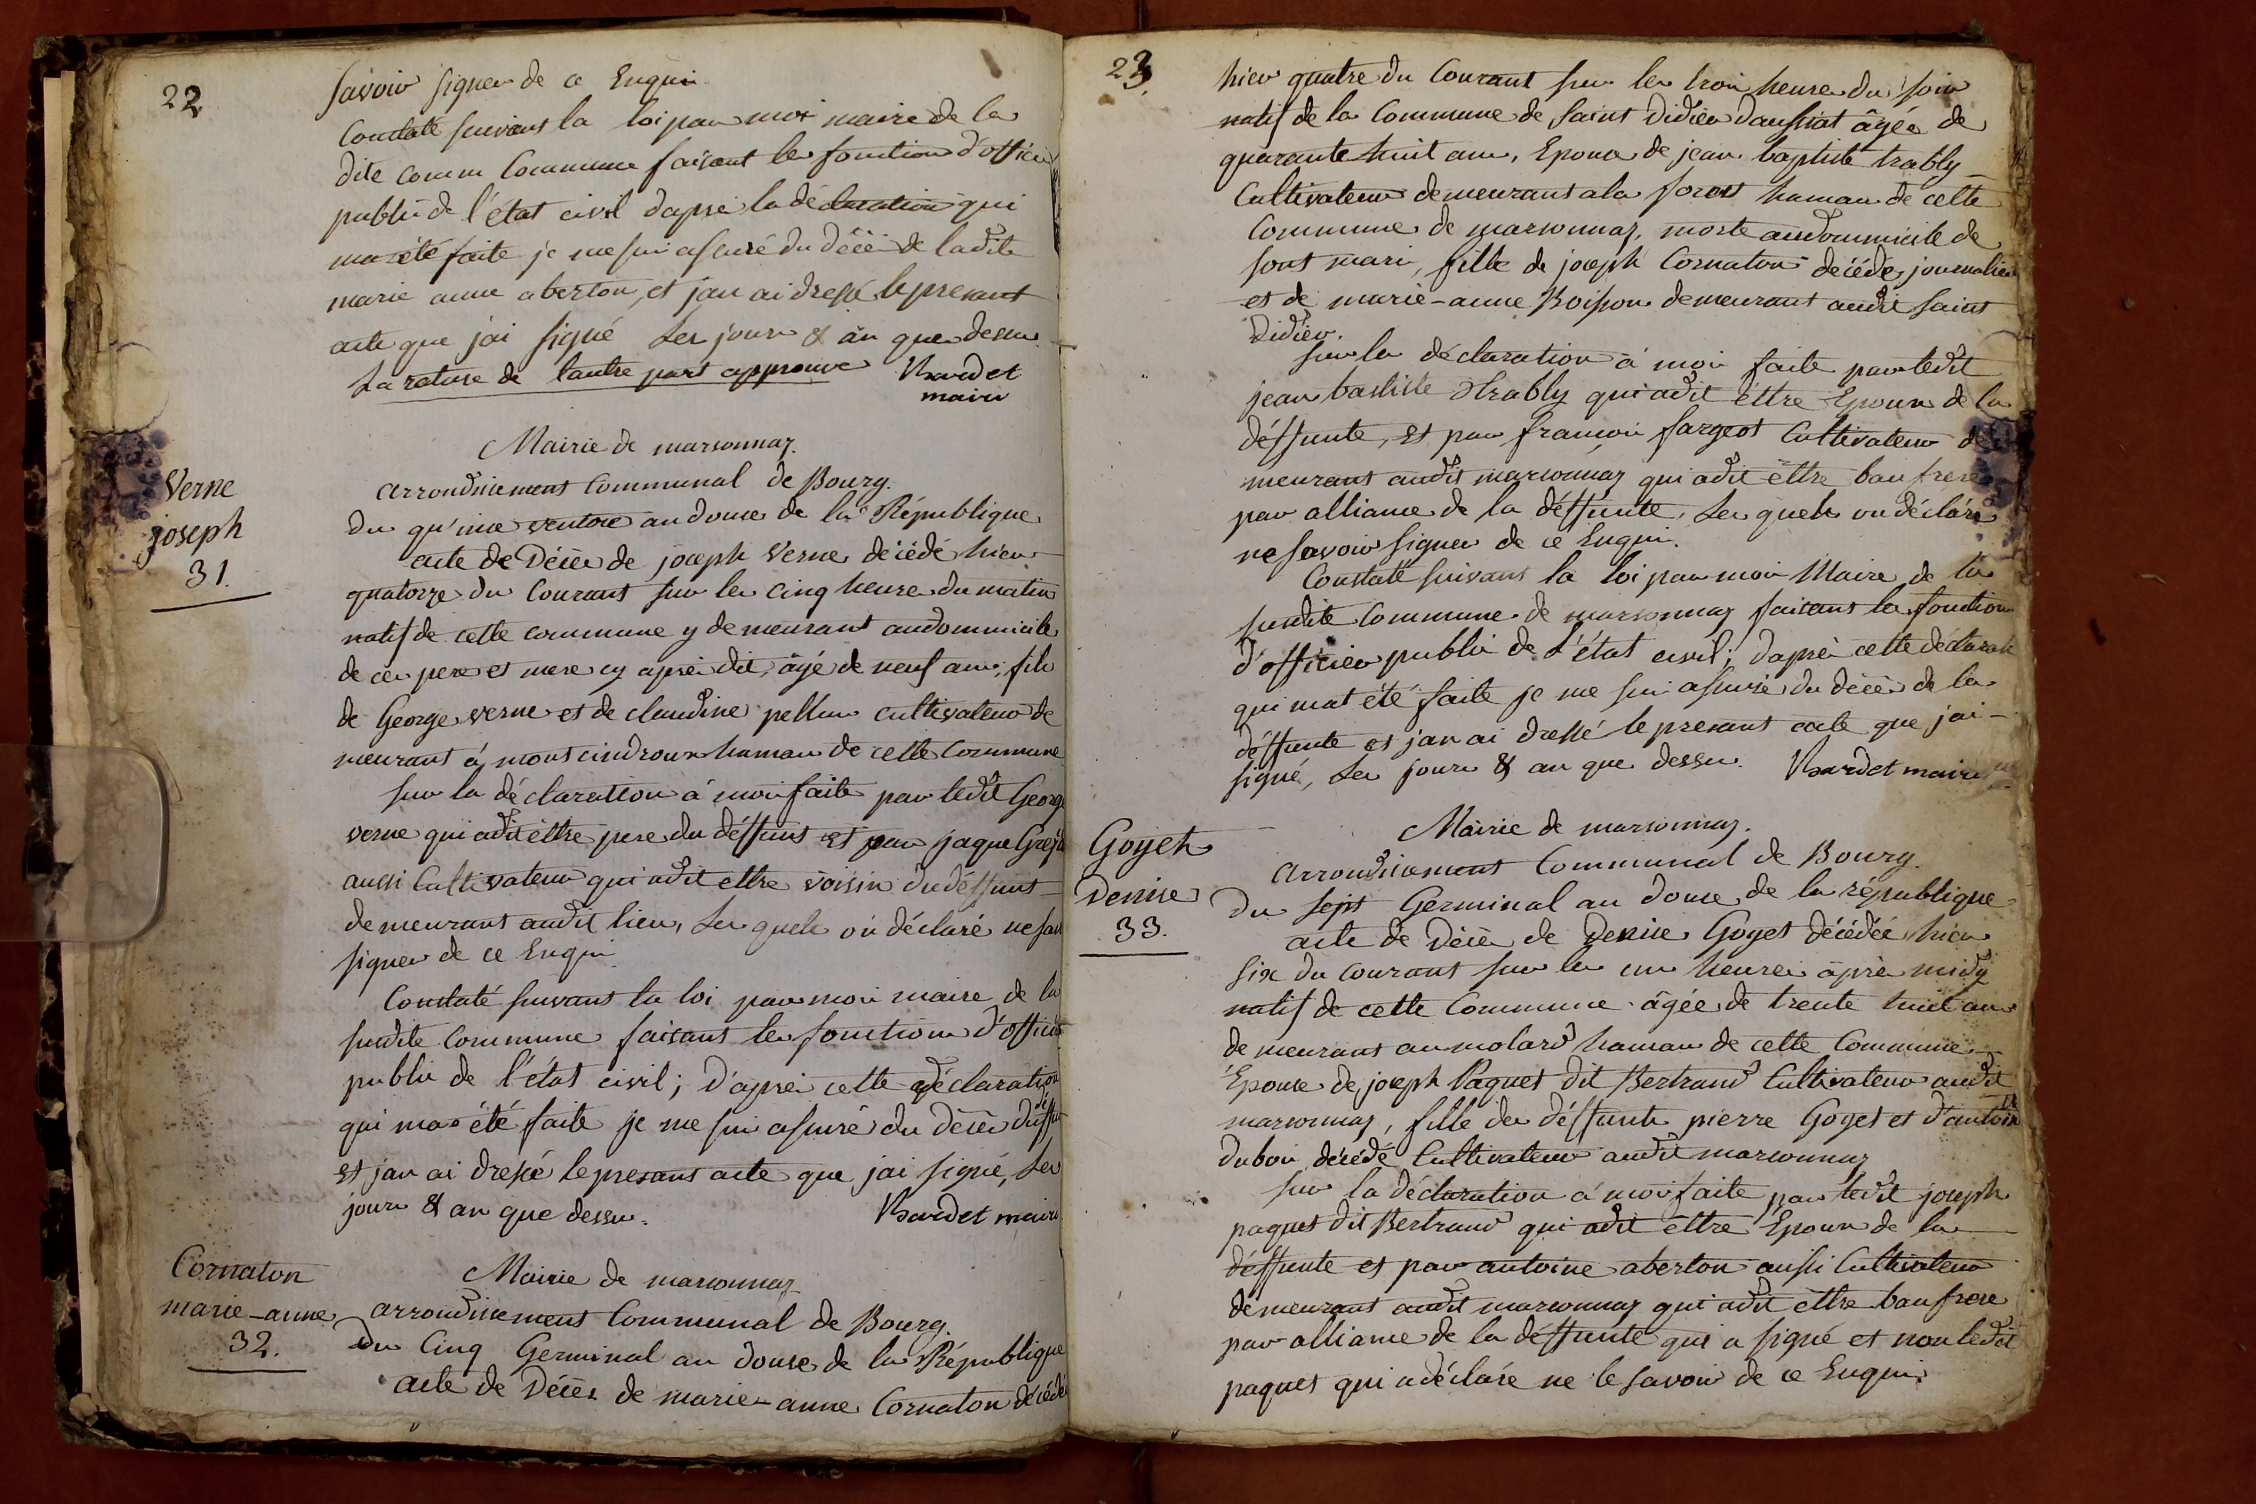 22
savoir signer de ce Enquis.
Constaté suivant la loi par moi maire de la
dite comm Commune faisant les fonctions d'officier
public de l'état civil daprès la déclaration qui
ma été faite je me suis assuré du décè de ladite
marie anne aberton, et jan ai dressé le presant
acte que jai signé Les jours & ân que dessus.
La rature de lautre part approuvé Bardet
maire
Mairie de marsonnay.
arrondissement Communal de Bourg.
Verne
joseph
31.
du quinze ventose an douse de la République
acte de Décès de joseph Verne décédé hier
quatorze du Courant sur les cinq heures du matin
natif de cette commune y demeurant audommicile
de ces pere et mere cy aprè dit, âgé de neuf ans, fils
de George verne et de claudine pellus cultivateur de
meurant à mont cindroux hamau de cette Commune
sur la déclaration à moi faite par ledit George
verne qui adit êttre pere du déffunt et par jaque
aussi Cultivateur qui adit ettre voisin du déffunt
demeurant audit lieu, Les quels on déclaré ne sav
signer de ce Enquis
Constaté suivant la loi par moi maire de la
susdite Commune faisant les fonctions d'officier
public de l'état civil; d'après cette déclaration
qui ma été faite je me suis assuré du décès du déffun
et jan ai dressé le presant acte que jai signé, Les
jours & an que dessus. Bardet maire
Cornaton
marie-anne
32.
Mairie de marsonnay
arrondissement Communal de Bourg.
du Cinq Germinal an douse de la République
acte de Décès de marie-anne Cornaton décédée
23
hier quatre du Courant sur les trois heures du soir
natif de la Commune de saint Didier daussiat âgée de
quarante huit ans, Epouse de jean baptiste trably
Cultivateur demeurant a la forest hamau de cette
Commune de marsonnay, morte audommicile de
sont mari, fille de joseph Cornaton décédé, journalier
et de marie-anne Boisson demeurant audit saint
Didier.
sur la déclaration à moi faite par ledit
jean battiste trably qui adit êttre Epoux de la
déffunte, et par françois fargeot Cultivateur de
meurant audit marsonnay qui adit êttre bau frere
par alliance de la déffunte, Les quels on déclaré
ne savoir signer de ce Enquis.
Constaté suivant la loi par moi Maire de la
susdite Commune de marsonnay faisant les fonctions
d'officier public de l'état civil; daprès cette déclarati
qui mat été faite je me suis assuré du décès de la
déffunte et jan ai dressé le presant acte que jai
signé, Les jours & an que dessus. Bardet maire
Goyet
Denise
33.
Mairie de marsonnay.
arrondissement Communal de Bourg.
Du sept Germinal an douse de la république
acte de Décès de Denise Goyet décédée hier
six du courant sur les une heures âprès midy
natif de cette Commune âgée de trente huit ans
demeurant au molard hamau de cette Commune
Epouse de joseph Paquet dit Bertrand Cultivateur audit
marsonnay, fille des déffunts pierre Goyet et d'antoinette
dubois décédé Cultivateur audit marsonnay
sur la déclaration à moi faite par ledit joseph
paquet dit Bertrand qui adit êttre Epoux de la
déffunte et par antoine aberton aussi Cultivateur
demeurant audit marsonnay qui adit êttre bau frere
par alliance de la déffunte qui a signé et non ledit
paquet qui adéclaré ne le savoir de ce Enquis.